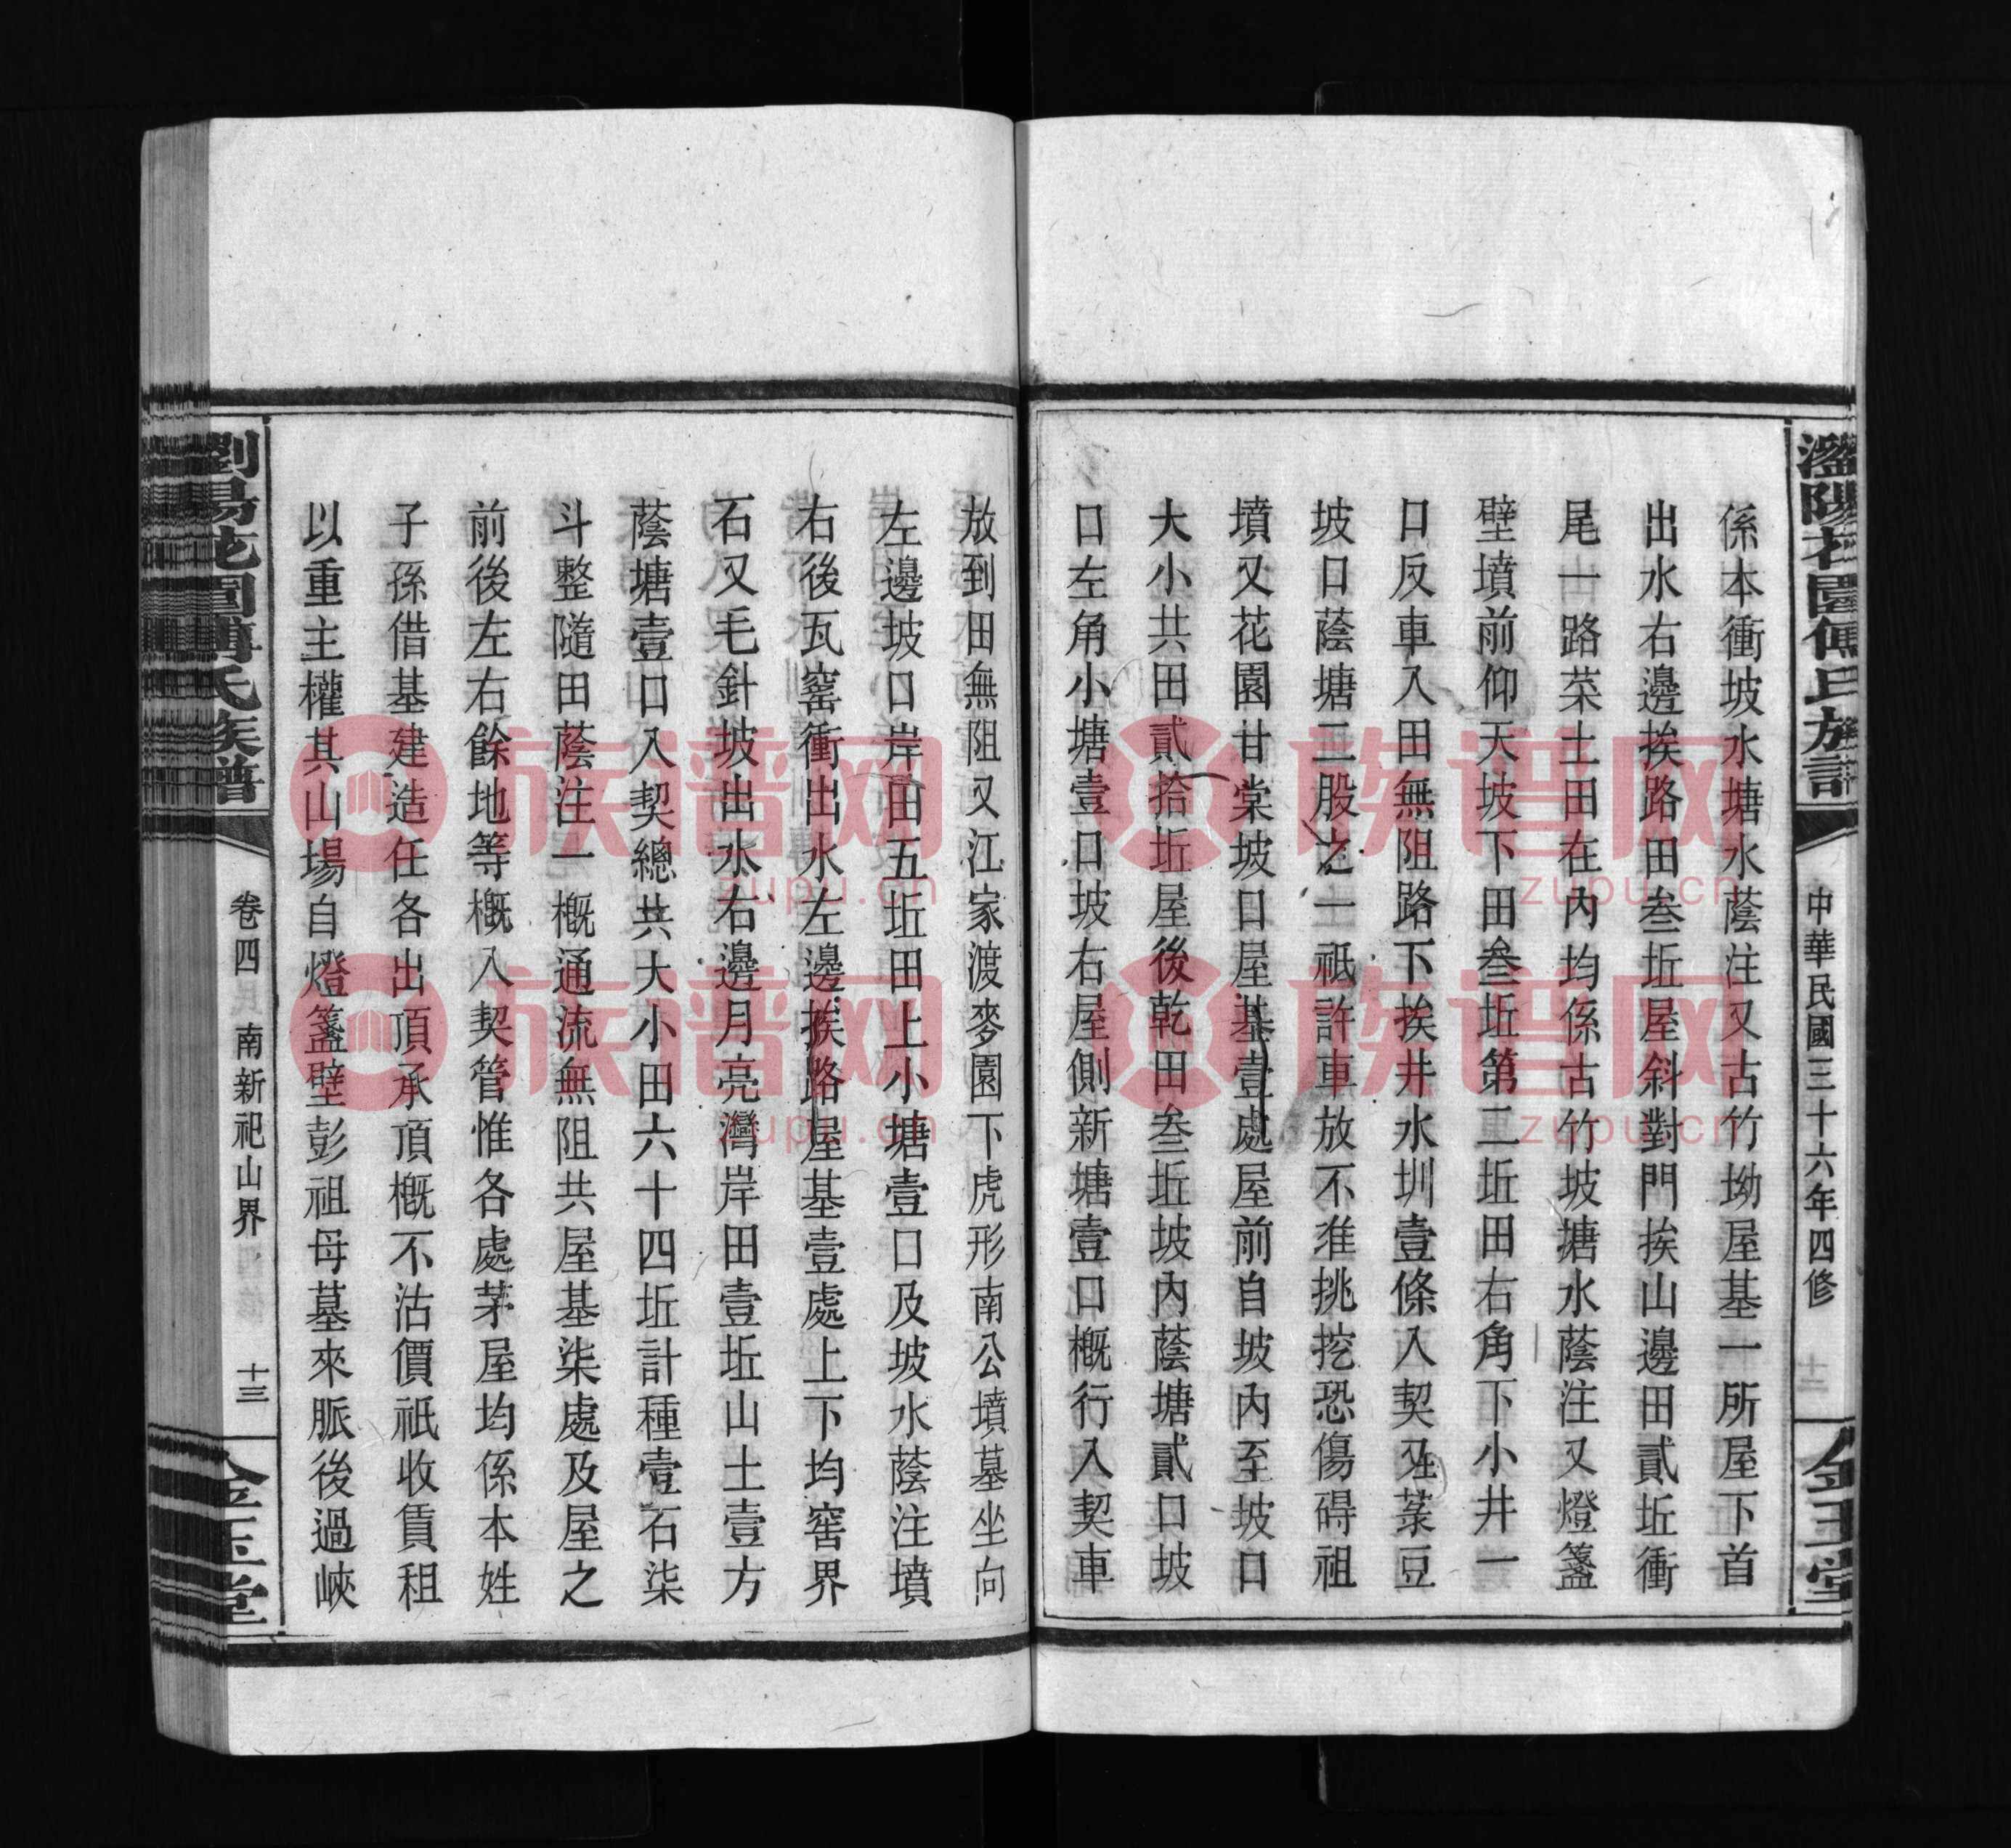 中華民國三十六年四修
係本衝坡水塘水蔭注又古竹坳屋基一所屋下首
出水右邊挨路田叁坵屋斜對門挨山邊田貳坵衝
尾一路菜土田在內均係古竹坡塘水蔭注又燈盞
壁墳前仰天坡下田叁坵第二坵田右角下小井一
口反車入田無阻路下挨井水圳壹條入契又菉豆
坡口蔭塘三股之一祇許車放不准挑挖恐傷碍祖
墳又花園甘棠坡口屋基壹處屋前自坡內至坡口
大小共田貳拾坵屋後乾田叁坵坡內蔭塘貳口坡
口左角小塘壹口坡右屋側新塘壹口概行入契車
放到田無阻又江家渡麥園下虎形南公墳墓坐向
左邊坡口岸田五坵田上小塘壹口及坡水蔭注墳
右後瓦窰衝出水左邊挨路屋基壹處上下均窖界
石又毛針坡出水右邊月亮灣岸田壹坵山土壹方
蔭塘壹口入契總共大小田六十四坵計種壹石柒
斗整隨田蔭注一概通流無阻共屋基柒處及屋之
前後左右餘地等概入契管惟各處茅屋均係本姓
子孫借基建造任各出頂承頂概不沽價祇收賃租
以重主權其山場自燈盞壁彭祖母墓來脈後過峽
瀏陽花園傅氏族譜
卷四
南新祀山界
十三
金玉堂
族谱网
zupu.cn
族谱网
zupu.cn
族谱网
zupu.cn
族谱网
zupu.cn